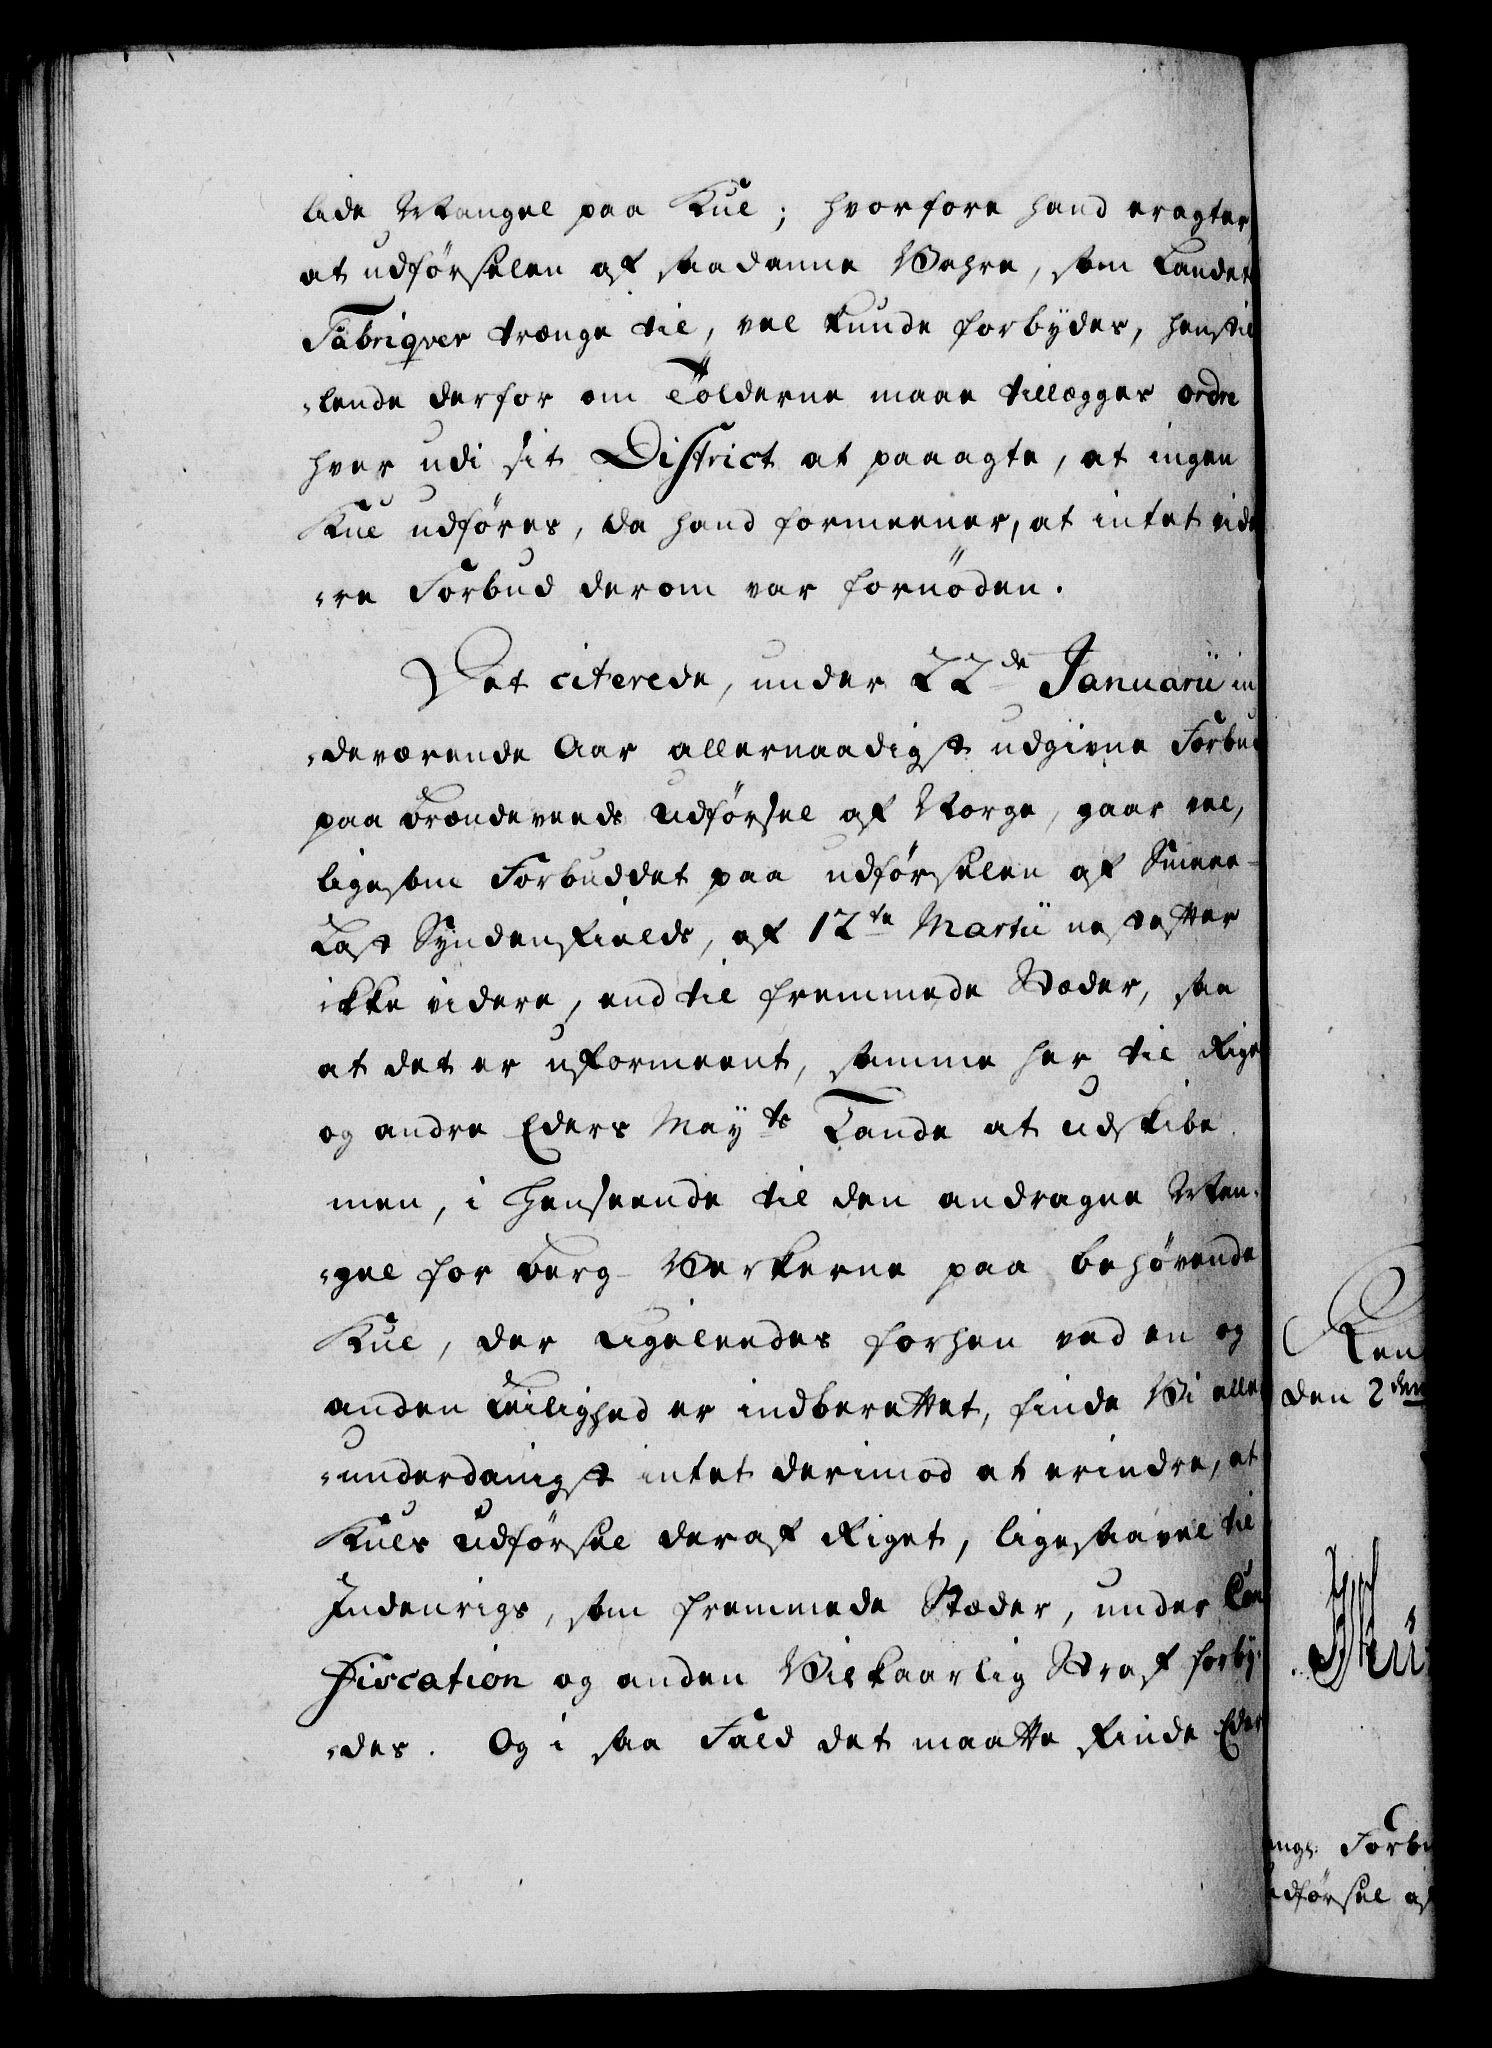 lide Mangel paa Kul; hvorfore hand eragter,
at udførselen af saadanne Vahre, som Landets
Fabriqver trænge til, vel kunde forbydes, henstil
-lende derfor om Tolderne maae tillægges ordre
hver udi sit District at paaagte, at ingen
Kul udføres, da hand formeener, at intet vide
-re Forbud derom var fornöden.
Det citerede, under 22de Januarii in
-deværende Aar allernaadigst udgivne Forbud
paa Brændeveeds Udførsel af Norge, gaar vel,
ligesom Forbuddet paa udførselen af Smaae-
Last Syndenfields, af 12te Martii nestefter
ikke videre, end til fremmede Stæder, saa
at det er uformeent, samme her til Riget
og andre Eders Mayts Lande at udskibe
men, i Henseende til den andragne Man-
-gel for Berg-Verkerne paa behøvende
Kul, der ligeleedes forhen ved en og
anden Leilighed er indberettet, finde Vi aller
-underdanigst intet derimod at erindre, at
Kuls Udførsel deraf Riget, ligesaavel til
Indenrigs, som fremmede Stæder, under Con
fiscation og anden Vilkaarlig Straf forby-
-des. Og i saa Fald det maatte finde Eders
Ren
den 2den
Forbu
udførsel af